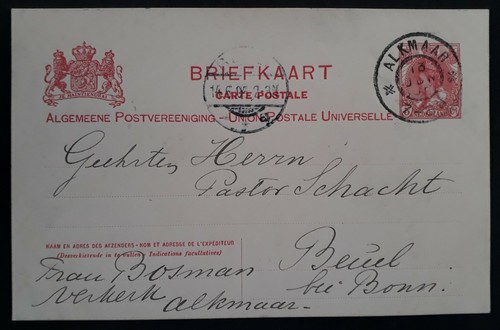 BRIEFKAART
CARTE POSTALE
ALGEMEENE POSTVEREENIGING - UNION POSTALE UNIVERSELLE
ALKMAAR
Geehrten Herrn
Pastor Schacht
Beuel
bei Bonn.
NAAM EN ADRES DES AFZENDERS - NOM ET ADRESSE DE L'EXPÉDITEUR
(Desverkiezende in te vullen) (Indications facultatives)
Frau Bosman
Verkerk
Alkmaar.